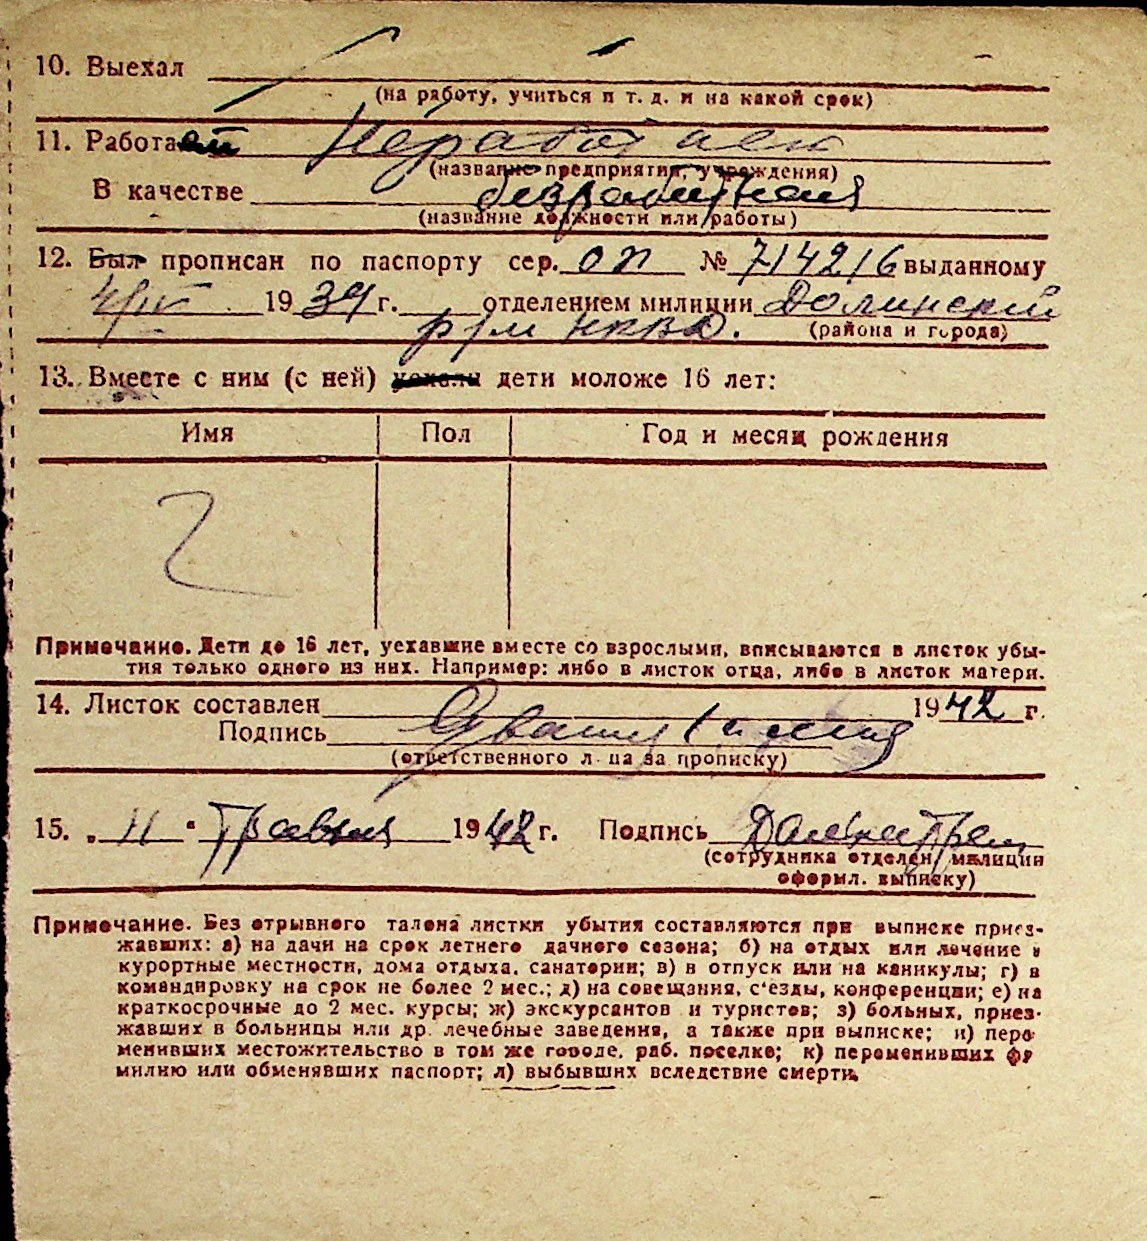 10. Выехал
(на работу, учиться и т. д. и на какой срок)
11. Работает Неработает
(название предприятия, учреждения)
В качестве безработная
(название должности или работы)
12. Был прописан по паспорту сер. ОП № 714216 выданному
4/IV 1939 г. отделением милиции Долинский
р/м НКВД. (района и города)
13. Вместе с ним (с ней) уехали дети моложе 16 лет:
Имя Пол Год и месяц рождения
Примечание. Дети до 16 лет, уехавшие вместе со взрослыми, вписываются в листок убы-
тия только одного из них. Например: либо в листок отца, либо в листок матери.
14. Листок составлен 1942 г.
Подпись
(ответственного лица за прописку)
15. „ 11 “ Травня 1942 г. Подпись
(сотрудника отделен. милиции
оформл. выписку)
Примечание. Без отрывного талона листки убытия составляются при выписке приез-
жавших: а) на дачи на срок летнего дачного сезона; б) на отдых или лечение в
курортные местности, дома отдыха, санатории; в) в отпуск или на каникулы; г) в
командировку на срок не более 2 мес.; д) на совещания, с'езды, конференции; е) на
краткосрочные до 2 мес. курсы; ж) экскурсантов и туристов; з) больных, приез-
жавших в больницы или др. лечебные заведения, а также при выписке; и) пере-
менивших местожительство в том же городе, раб. поселке; к) переменивших фа-
милию или обменявших паспорт; л) выбывших вследствие смерти.